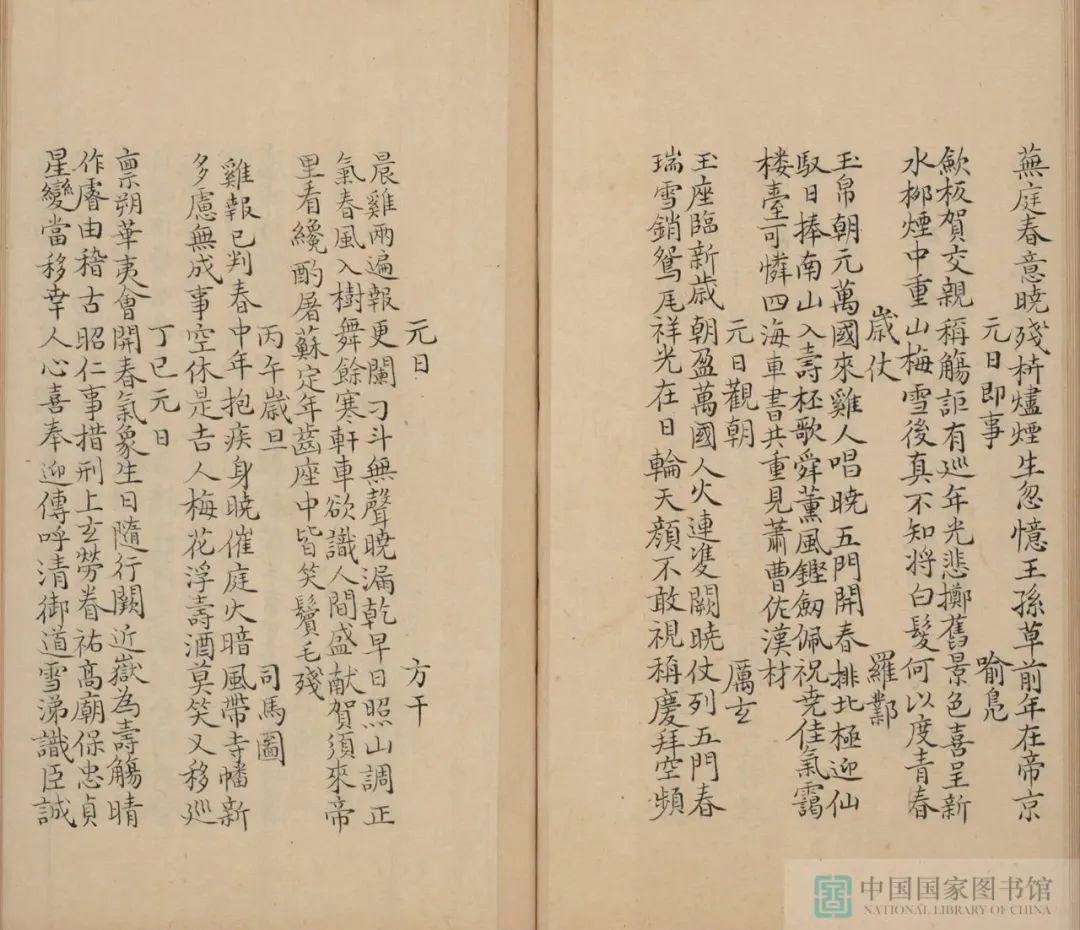 蕪庭春意曉殘枿燼煙生忽憶王孫草前年在帝京
元日即事 喻凫
歘板賀交親稱觴詎有巡年光悲擲舊景色喜呈新
水栁煙中重山梅雪後真不知将白髮何以度青春
歳仗 羅鄴
玉帛朝元萬國來雞人唱曉五門開春排北極迎仙
馭日捧南山入壽柸歌舜薫風鏗劒佩祝堯佳氣靄
楼臺可憐四海車書共重見蕭曹佐漢材
元日觀朝 厲玄
玉座臨新歳朝盈萬國人火連䨇闕曉仗列五門春
瑞雪銷鴛尾祥光在日輪天顔不敢視稱慶拜空頻
元日 方干
晨雞兩遍報更闌刁斗無聲曉漏乾早日照山調正
氣春風入樹舞餘寒軒車欲識人間盛献賀須來帝
里看纔酌屠蘇定年齒座中皆笑鬢毛殘
丙午歳旦 司馬圖
雞報已判春中年抱疾身曉催庭火暗風帶寺幡新
多慮無成事空休是吉人梅花浮壽酒莫笑又移巡
丁巳元日
禀朔華夷會開春氣象生日隨行闕近嶽為壽觴晴
作睿由稽古昭仁事措刑上玄勞眷祐髙廟保忠貞
星變當移幸人心喜奉迎傳呼清御道雪涕識臣誠
中国国家图书馆
NATIONAL LIBRARY OF CHINA